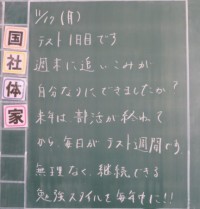 11/17 (月)
テスト1日目です
週末に追いこみが
自分なりにできましたか?
来年は部活が終わって
から毎日がテスト週間です
無理なく、継続できる
勉強スタイルを毎年中に!!
国
社
体
家